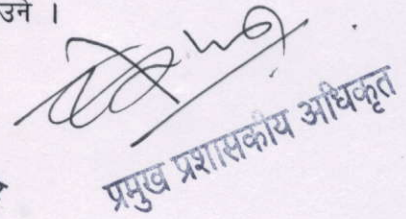 उने ।
प्रमुख प्रशासकीय अधिकृत